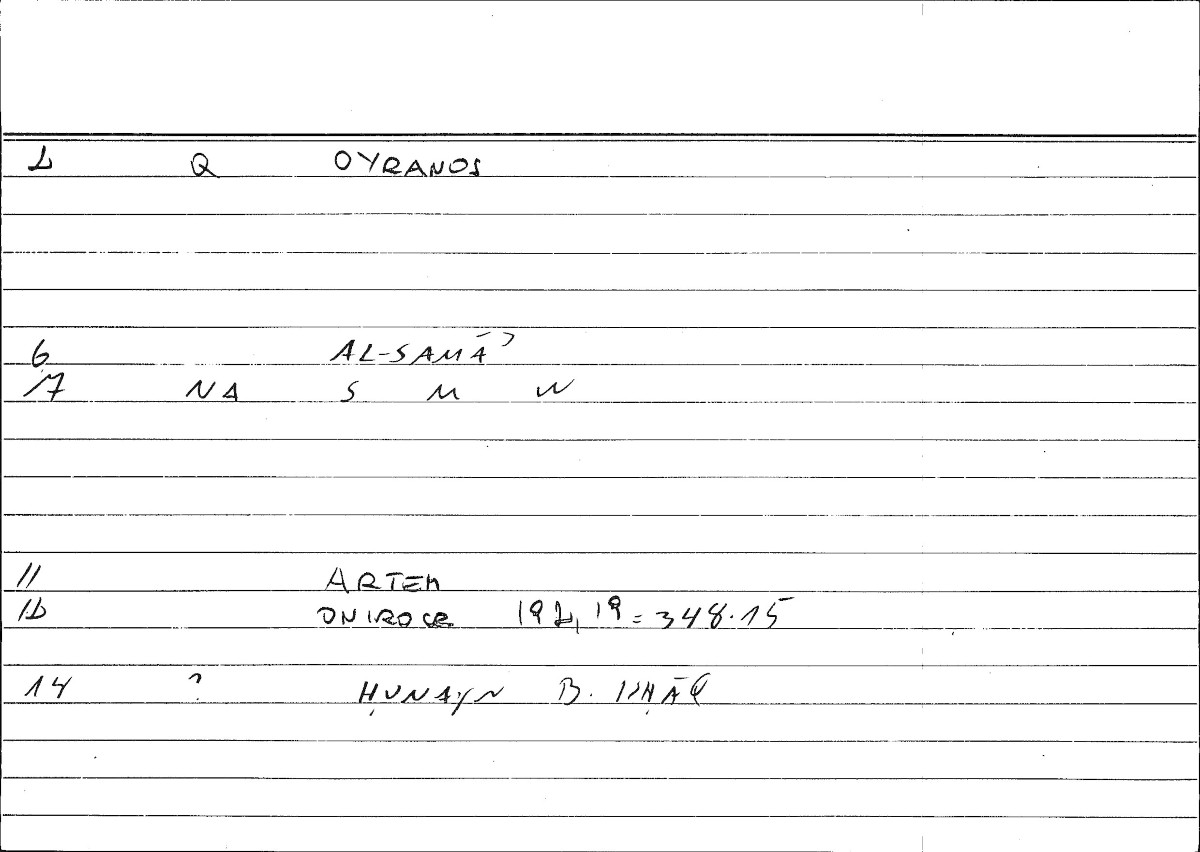 2 Q OYRANOS
6 AL-SAMĀʾ
17 NA S M W
11 ARTEM
12 ONIROCR 192,19 = 348.15
14 ? ḤUNAYN B. ISḤĀQ